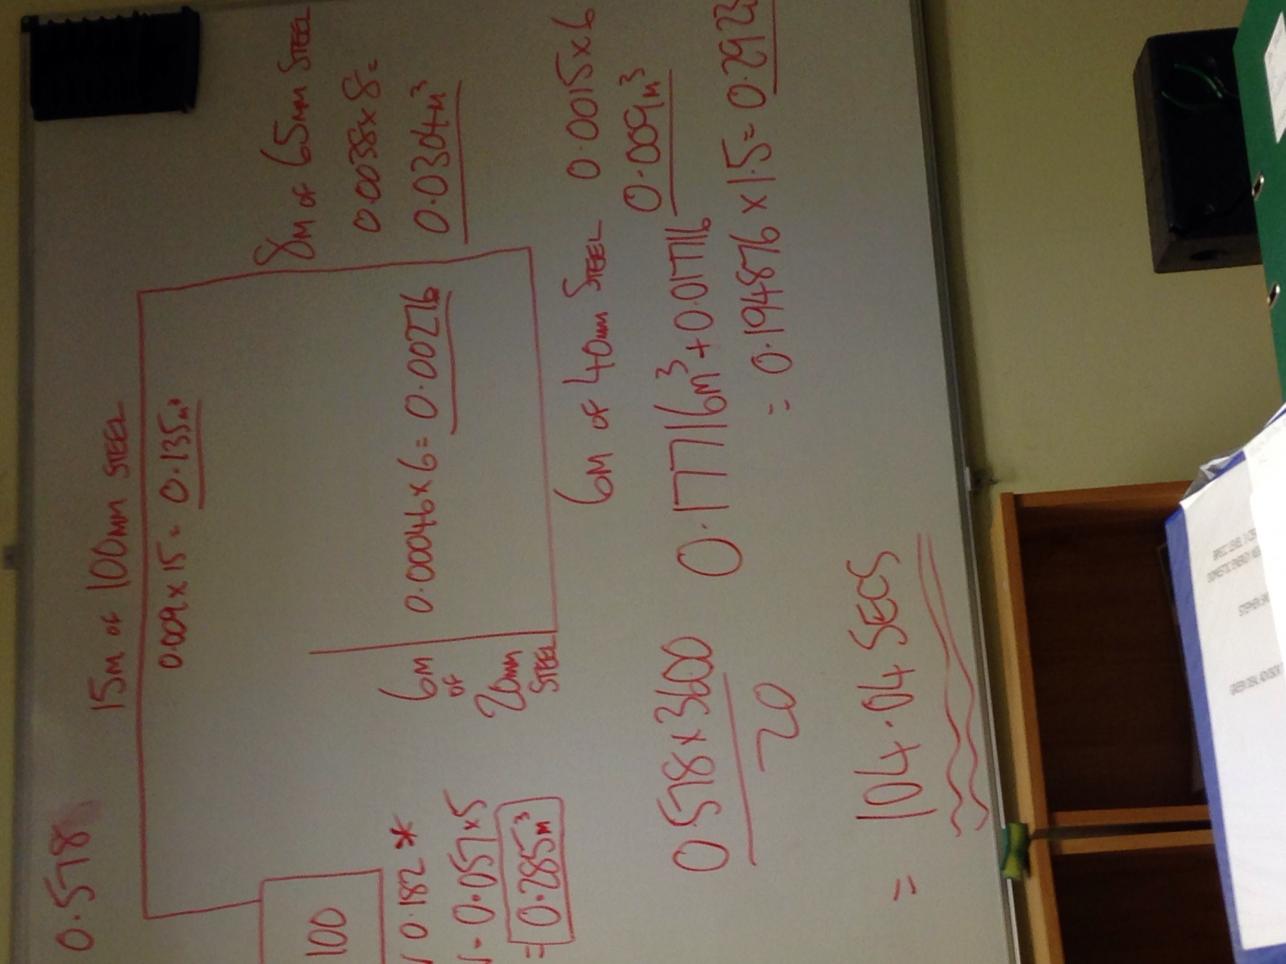 0.578
15M OF 100MM STEEL
0.009 x 15 = 0.135m³
8M OF 65MM STEEL
0.0038 x 8 =
0.0304M³
100
0.182 *
0.057 x 5
= 0.285M³
6M
OF
20MM
STEEL
0.00046 x 6 = 0.00276
6M OF 40MM STEEL
0.0015 x 6
0.009M³
0.17716M³ + 0.017716
= 0.194876 x 1.5 = 0.2923
0.578 x 3600
20
= 104.04 SECS